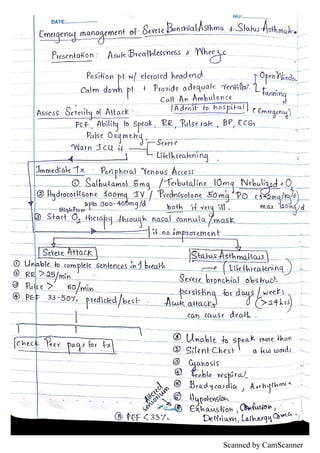 DATE
NO
Emergency management of Severe Bronchial Asthma & Status Asthmaticus
Presentation: Acute Breathlessness & Wheeze
Position pt w/ elevated headend
Open Window
Calm down pt + Provide adequate ventil
Fanning
Call An Ambulance
Admit to hospital (Emergency)
Assess Severity of Attack:
PEF, Ability to Speak, RR, Pulse rate, BP, ECG
Pulse Oxymetry
Warn ICU if
Severe
Lifethreatning
Immediate Tx: Peripheral Venous Access
① Salbutamol 5mg / Terbutaline 10mg Nebulized + O2
② Hydrocortisone 100mg IV / Prednisolone 50mg PO
upto 300-400mg/d
both if very ill.
High Flow
③ Start O2 therapy through nasal cannula / mask
if no improvement
Severe Attack
Status Asthmaticus
① Unable to complete sentences in 1 breath
(Lifethreatening)
② RR > 25/min
Severe bronchial obstruc
③ Pulse > 110/min
persisting for days / weeks
④ PEF 33-50% predicted/best
Acute attacks (>24hrs)
can cause death.
Check Prev page for Tx
① Unable to speak more than
a few words
② Silent Chest
③ Cyanosis
④ Feeble respira
⑤ Bradycardia, Arrhythmia
Altered
⑥ Hypotension
⑦ Exhaustion, Confusion,
Delirium, Lethargy Coma
⑧ PEF < 33%
Scanned by CamScanner